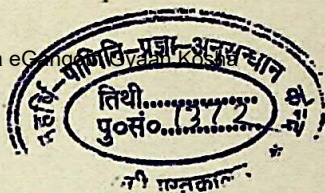 a eGangotri Gyaan Kosha
महर्षि-पाणिनि-प्रज्ञा-अनुसन्धान
तिथी..................
पु०सं०.1372......